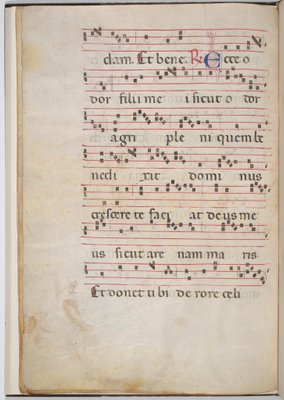 dam. Et bene. R. Ecce o
dor filii me i sicut o dor
agri ple ni quem be
nedi xit domi nus
crescere te faci at deus me
us sicut are nam ma ris
Et donet ti bi de rore celi